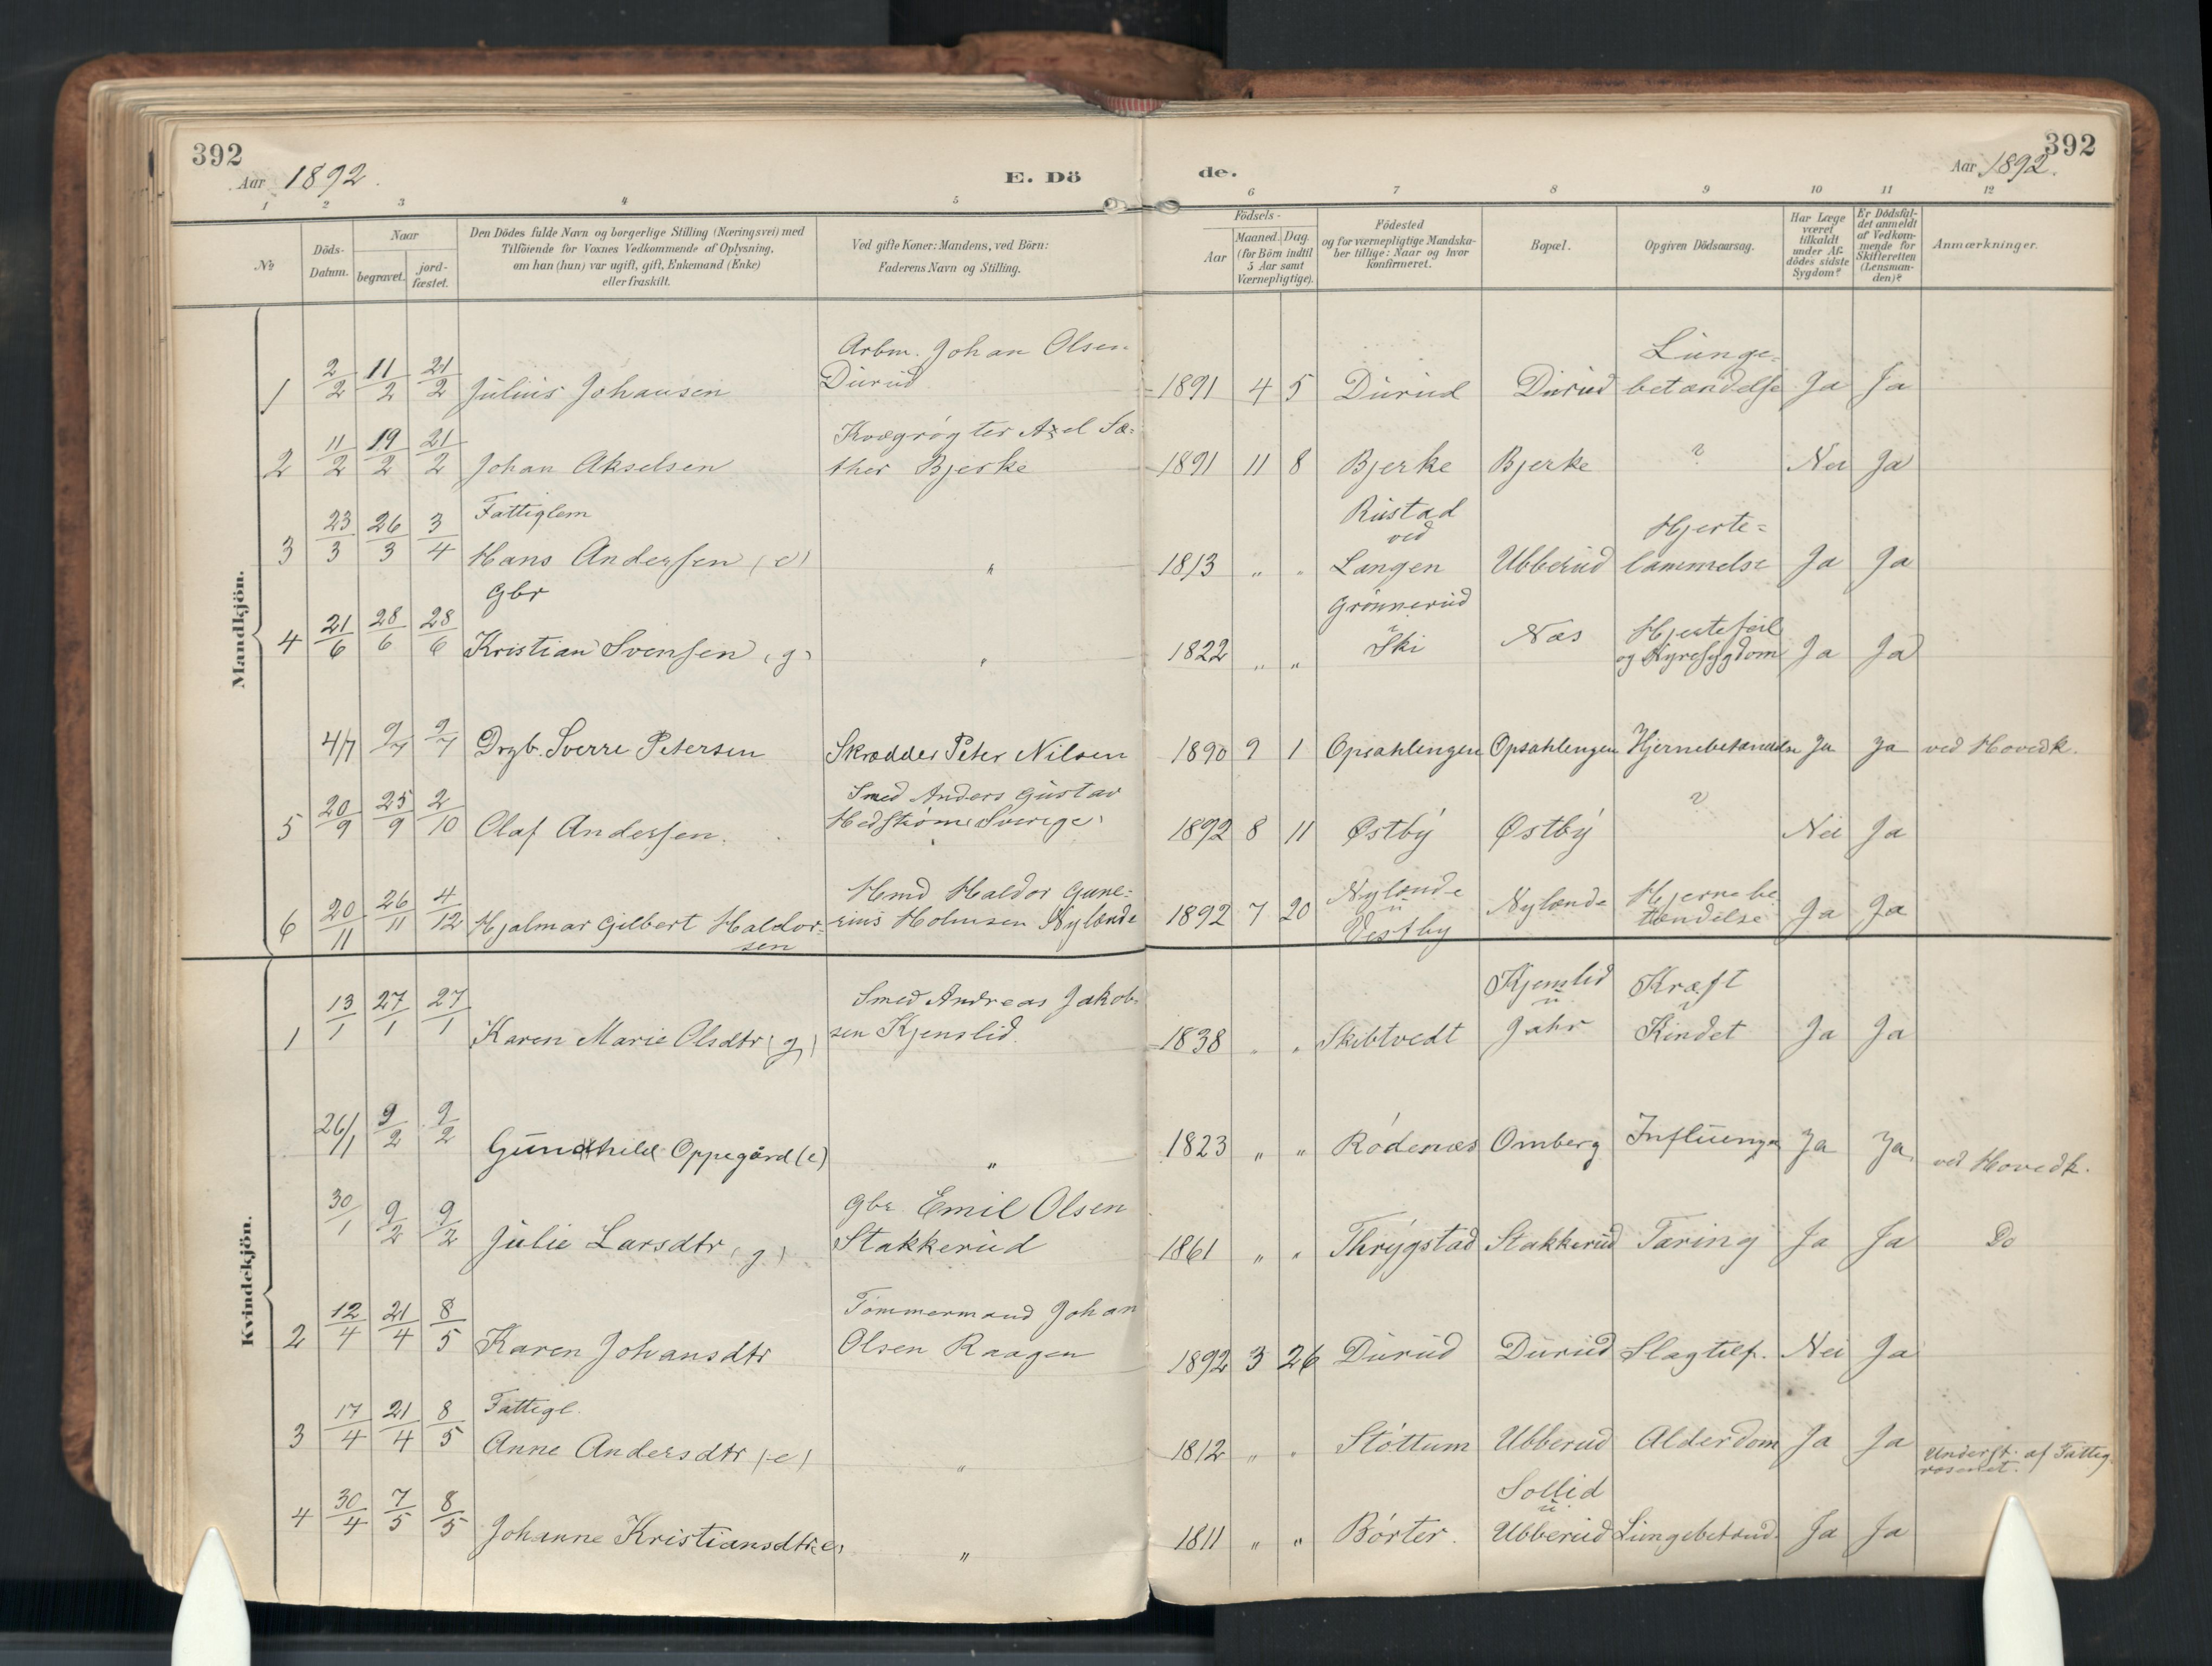 392
Aar 1892.
E. Dö
de.
Aar 1892.
392
1 2 3 4 5 6 7 8 9 10 11 12
№
Döds-
Datum.
Naar
begravet.
jord-
fæstet.
Den Dödes fulde Navn og borgerlige Stilling (Næringsvei) med
Tilföiende for Voxnes Vedkommende af Oplysning,
om han (hun) var ugift, gift, Enkemand (Enke)
eller fraskilt.
Ved gifte Koner: Mandens, ved Börn:
Faderens Navn og Stilling.
Födsels-
Aar
Maaned. Dag.
(for Börn indtil
5 Aar samt
Værnepligtige).
Födested
og for værnepligtige Mandska-
ber tillige: Naar og hvor
konfirmeret.
Bopæl.
Opgiven Dödsaarsag.
Har Læge
været
tilkaldt
under Af-
dödes sidste
Sygdom?
Er Dödsfal-
det anmeldt
af Vedkom-
mende for
Skifteretten
(Lensman-
den)?
Anmærkninger.
Mandkjön.
Arbm. Johan Olsen Lunge-
1 2/2 11/2 21/2 Julius Johansen Durud 1891 4 5 Durud Durud betændelse Ja Ja
Kvægrøgter Axel Sæ-
2 11/2 19/2 21/2 Johan Akselsen ther Bjerke 1891 11 8 Bjerke Bjerke ? Nei Ja
Fattiglem Rustad
ved Hjerte-
3 23/3 26/3 3/4 Hans Andersen (e) " 1813 " " Langen Ubberud lammelse Ja Ja
Gbr Grønnerud
Hjertefeil
4 21/6 28/6 28/6 Kristian Svensen (g) " 1822 " " i Ski Næs og Nyresygdom Ja Ja
4/7 9/7 9/7 Drgb. Sverre Petersen Skrædder Peter Nilsen 1890 9 1 Opsahlengen Opsahlengen Hjernebetændelse Ja Ja ved Hovedk.
Smed Anders Gustav
5 20/9 25/9 2/10 Olaf Andersen. Hedstrøm (Sverige) 1892 8 11 Østby Østby ? Nei Ja
Hmd Haldor Gune- Nylænde Hjernebe
6 20/11 26/11 4/12 Hjalmar Gilbert Haldor- rius Holmsen Nylænde 1892 7 20 u Nylænde tændelse Ja Ja
sen Vestby
Kvindekjön.
Smed Andreas Jakob- Kjenslid Kræft
1 13/1 27/1 27/1 Karen Marie Olsdtr (g) sen Kjenslid. 1838 " " Skibtvedt u Jahr i Kindet Ja Ja
26/1 9/2 9/2 Gunhild Oppegård (e) " 1823 " " Rødenæs Omberg Influenza Ja Ja ved Hovedk.
Gbr. Emil Olsen
30/1 9/2 9/2 Julie Larsdtr (g) Stakkerud 1861 " " Thrygstad Stakkerud Tæring Ja Ja Do
Tømmermand Johan
2 12/4 21/4 8/5 Karen Johansdtr Olsen Raagen 1892 3 26 Durud Durud Slagtilf. Nei Ja
Fattigl.
3 17/4 21/4 8/5 Anne Andersdtr (e) " 1812 " " Støttum Ubberud Alderdom Ja Ja Underst. af Fattig-
væsenet.
Sollid
4 30/4 7/5 8/5 Johanne Kristiansdtr (e) " 1811 " " Børter. u. Ubberud Lungebetænd. Ja Ja